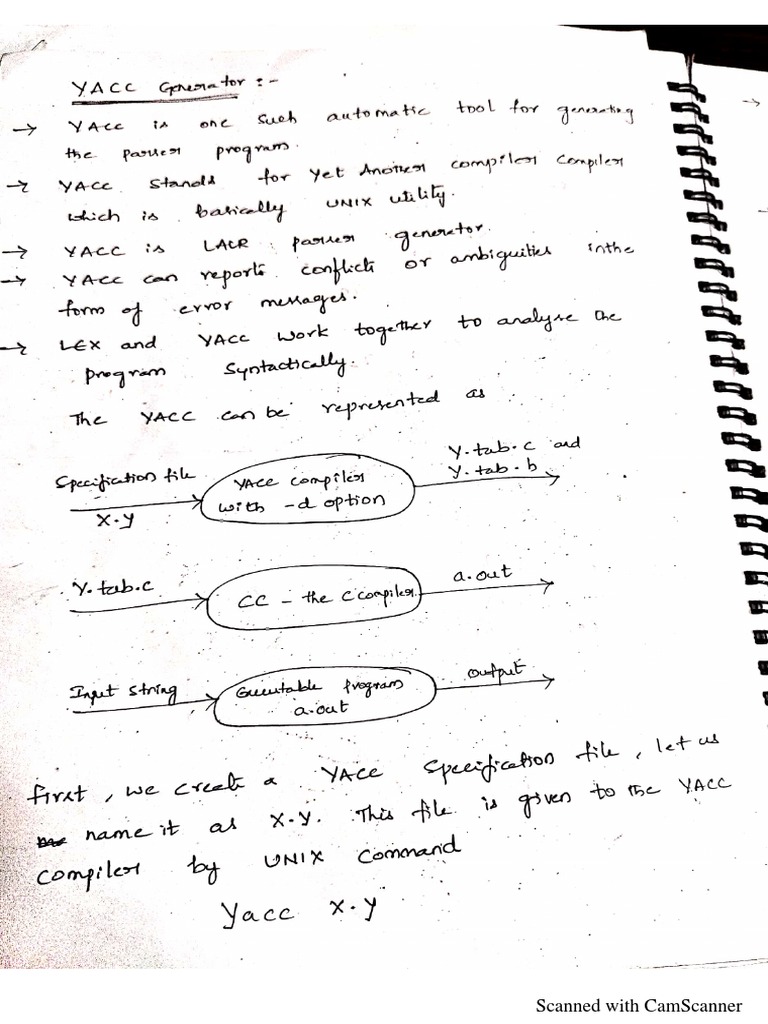 YACC Generator :-
→ YAcc is one such automatic tool for generating
the parser program.
→ YACC stands for Yet Another compiler compiler
which is basically UNIX utility.
→ YACC is LALR parser generator.
→ YAcc can reports conflicts or ambiguities inthe
form of error messages.
→ LEX and YACC work together to analyse the
program syntactically.
The YACC can be represented as
Specification file
x.y
YAcc compiler
with -d option
y.tab.c and
y.tab.h
y.tab.c
CC - the C compiler
a.out
Input string
Executable program
a.out
output
first, we create a YACC specification file, let us
name it as x.y. This file is given to the YACC
compiler by UNIX command
Yacc x.y
Scanned with CamScanner